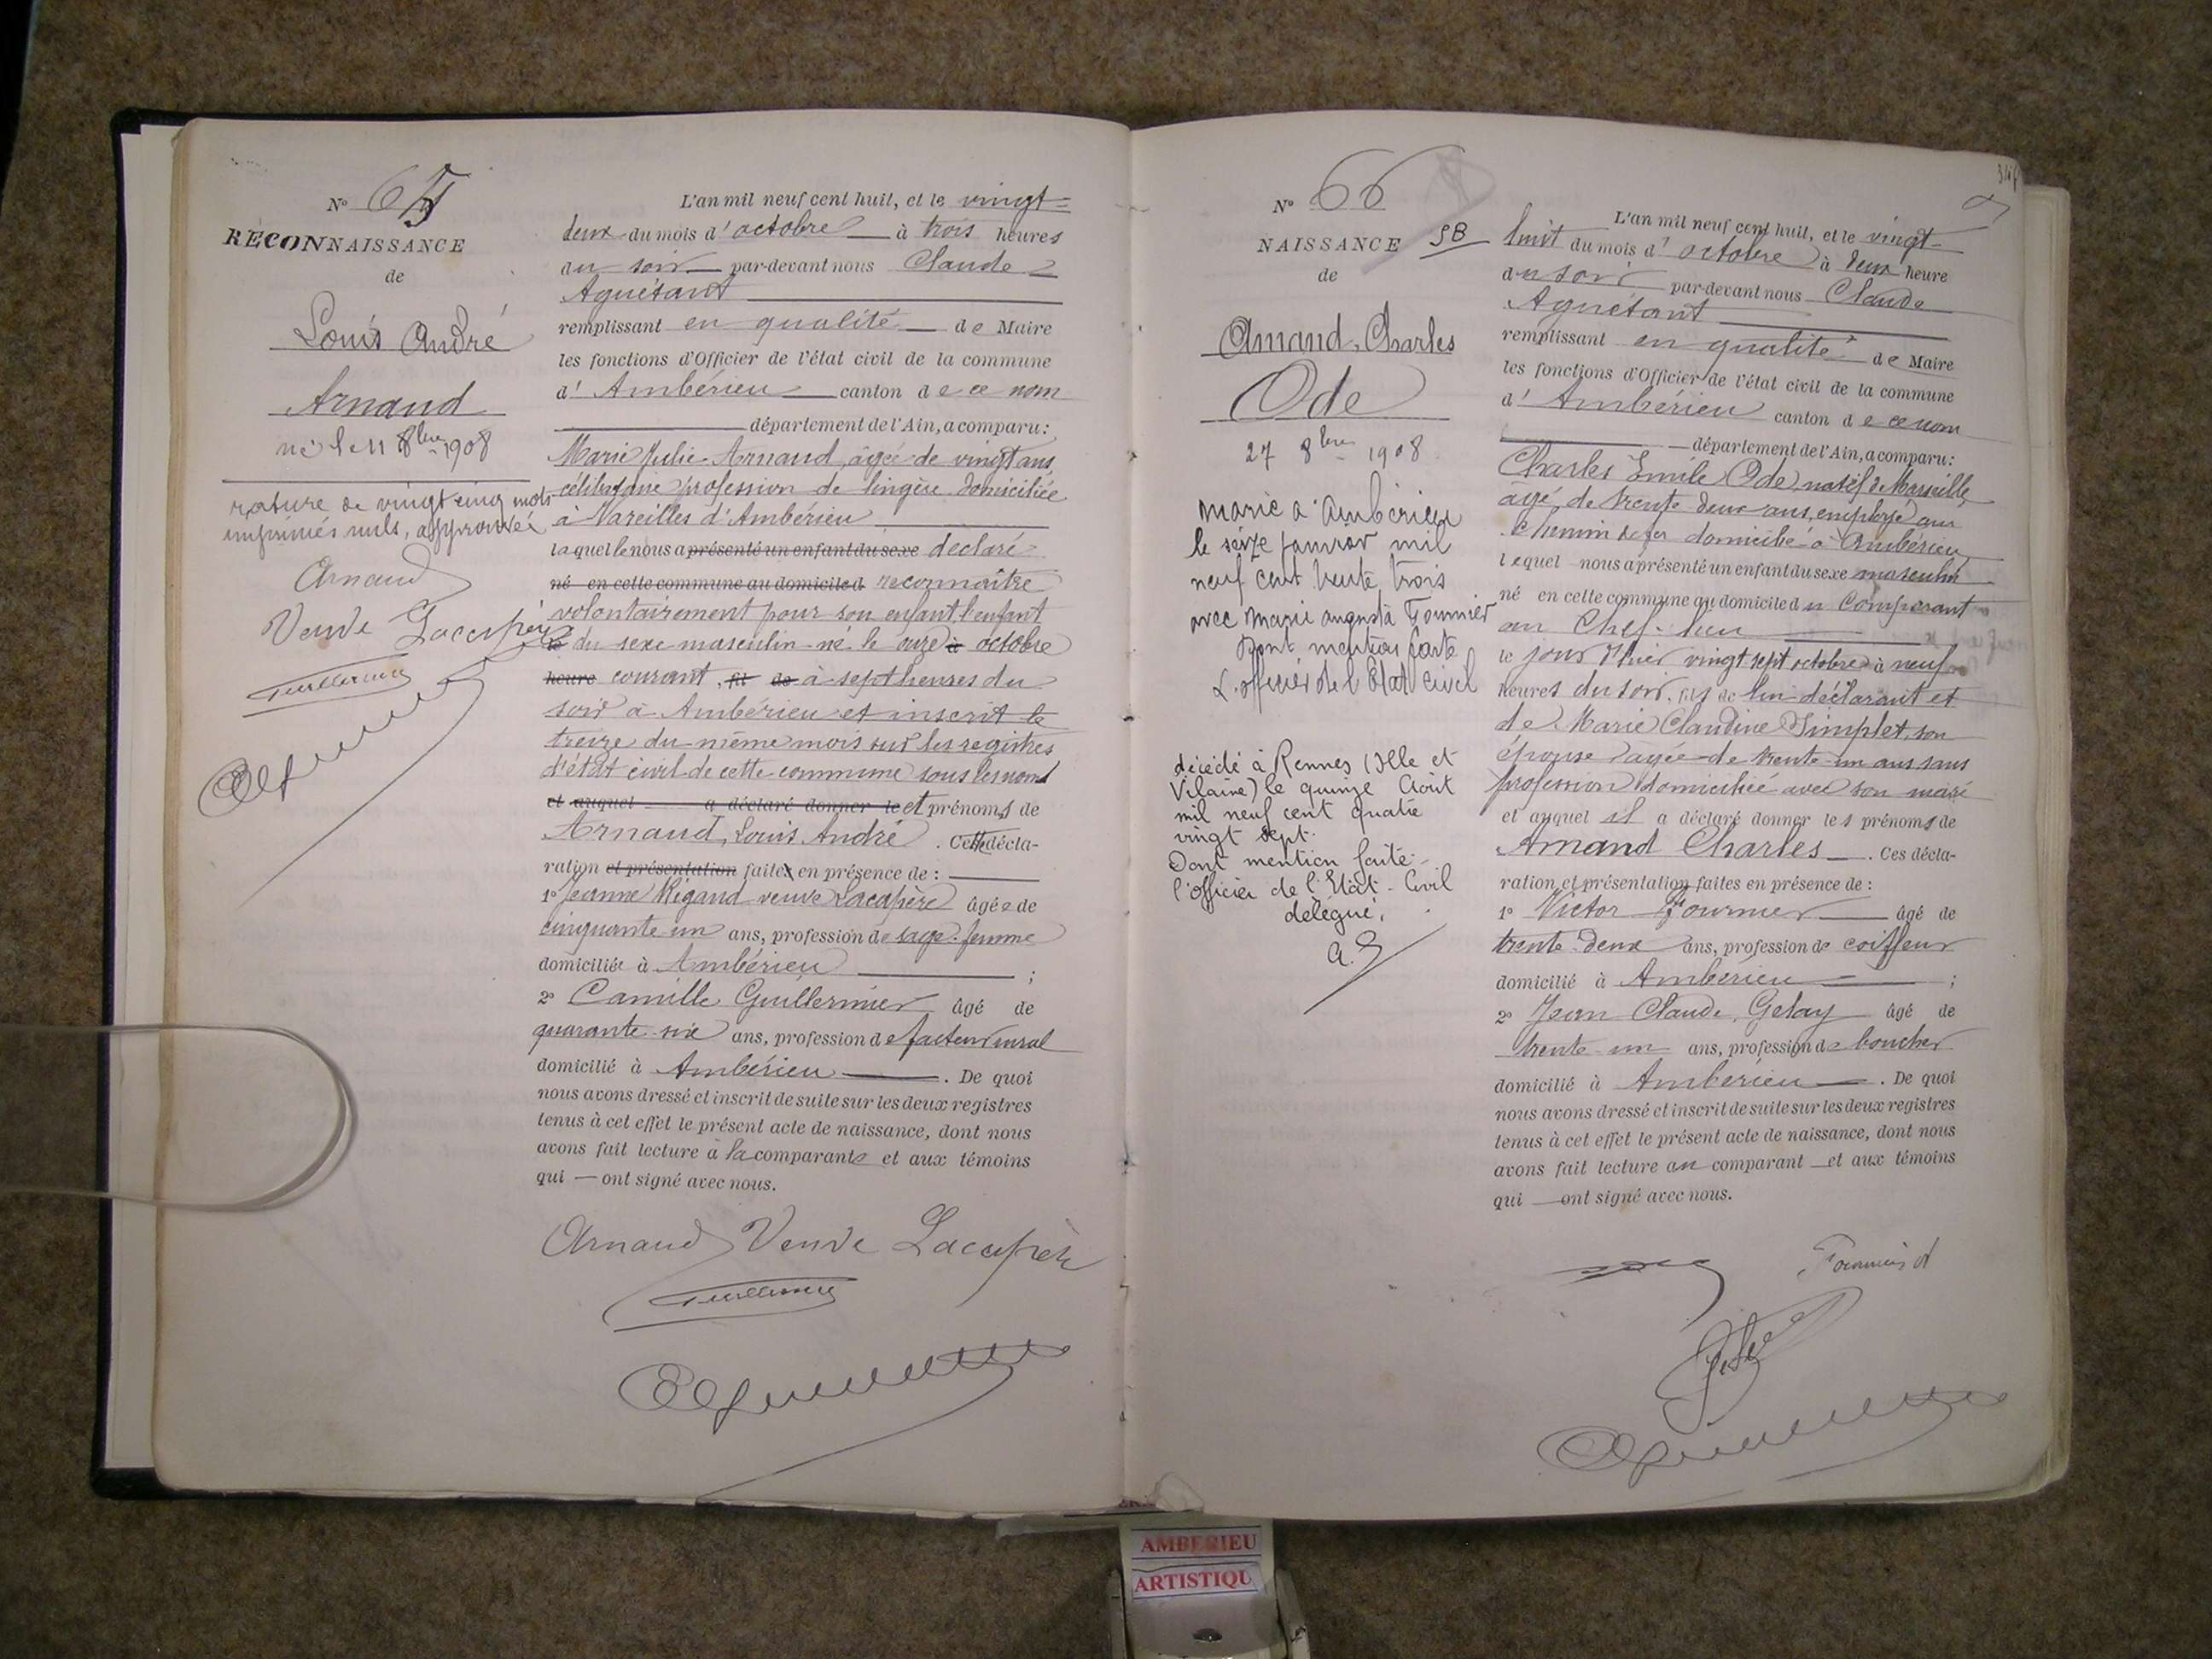 N° 65
RECONNAISSANCE
de
Louis André
Arnaud
né le 11 8bre 1908
rature de vingt cinq mots
imprimés nuls, approuvée
Arnaud
Veuve Lacapère
L'an mil neuf cent huit, et le vingt-
deux du mois d'octobre à trois heures
du soir par-devant nous Claude
Aguétant
remplissant en qualité de Maire
les fonctions d'Officier de l'état civil de la commune
d'Ambérieu canton de ce nom
département de l'Ain, a comparu:
Marie Julie Arnaud, âgée de vingt ans,
célibataire profession de lingère domiciliée
à Vareilles d'Ambérieu
laquelle nous a présenté un enfant du sexe déclaré
né en cette commune au domicile d reconnaître
volontairement pour son enfant, l'enfant
du sexe masculin né le onze à octobre
heure courant, fil de à sept heures du
soir à Ambérieu et inscrit le
treize du même mois sur les registres
d'état civil de cette commune sous les noms
et auquel a déclaré donner le et prénoms de
Arnaud, Louis André. Cette décla-
ration et présentation faite en présence de :
1° Jeanne Rigaud veuve Lacapère âgée de
cinquante un ans, profession de sage-femme
domiciliée à Ambérieu ;
2° Camille Guillermier âgé de
quarante-six ans, profession de facteur rural
domicilié à Ambérieu. De quoi
nous avons dressé et inscrit de suite sur les deux registres
tenus à cet effet le présent acte de naissance, dont nous
avons fait lecture à la comparante et aux témoins
qui — ont signé avec nous.
Arnaud Veuve Lacapère
N° 66
NAISSANCE SB
de
Amand, Charles
Ode
27 8bre 1908
marié à Ambérieu
le seize janvier mil
neuf cent trente trois
avec Marie Augusta Fournier
Dont mention faite
L'officier de l'Etat civil
décédé à Rennes (Ille et
Vilaine) le quinze Août
mil neuf cent quatre
vingt sept.
Dont mention faite
l'officier de l'Etat-Civil
délégué,
L'an mil neuf cent huit, et le vingt-
huit du mois d'octobre à deux heure
du soir par-devant nous Claude
Aguétant
remplissant en qualité de Maire
les fonctions d'Officier de l'état civil de la commune
d'Ambérieu canton de ce nom
département de l'Ain, a comparu:
Charles Emile Ode, natif de Marseille,
âgé de trente-deux ans, employé au
chemin de fer domicilié à Ambérieu
lequel nous a présenté un enfant du sexe masculin
né en cette commune au domicile du comparant
au Chef-lieu
le jour d'hier vingt sept octobre à neuf
heures du soir, fils de lui déclarant et
de Marie Claudine Simplet, son
épouse âgée de trente-un ans sans
profession domiciliée avec son mari
et auquel il a déclaré donner les prénoms de
Amand Charles. Ces décla-
ration et présentation faites en présence de :
1° Victor Fournier âgé de
trente-deux ans, profession de coiffeur
domicilié à Ambérieu ;
2° Jean Claude Gelay âgé de
trente-un ans, profession de boucher
domicilié à Ambérieu. De quoi
nous avons dressé et inscrit de suite sur les deux registres
tenus à cet effet le présent acte de naissance, dont nous
avons fait lecture au comparant et aux témoins
qui — ont signé avec nous.
AMBERIEU
ARTISTIQU